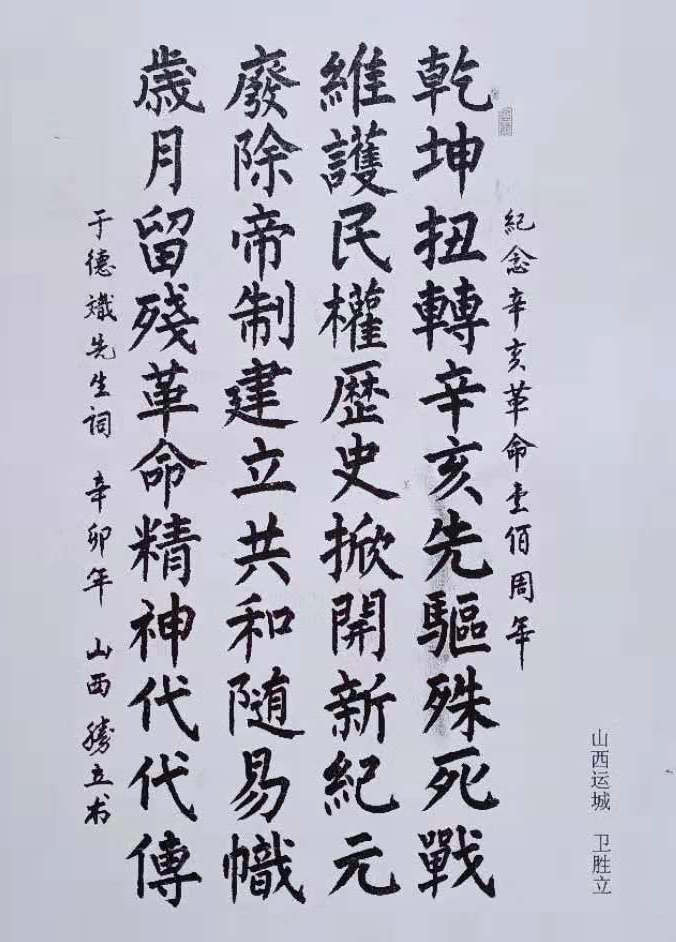 紀念辛亥革命壹佰周年
乾坤扭轉辛亥先驅殊死戰
維護民權歷史掀開新紀元
廢除帝制建立共和随易幟
歲月留殘革命精神代代傳
于德熾先生詞 辛卯年 山西勝立书
山西运城 卫胜立